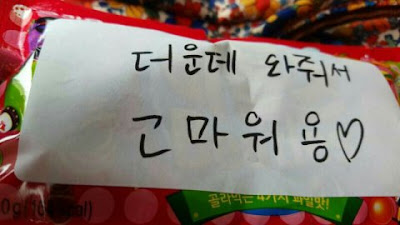 더운데 와줘서
고마워용♡
골라먹는 4가지 과일맛!